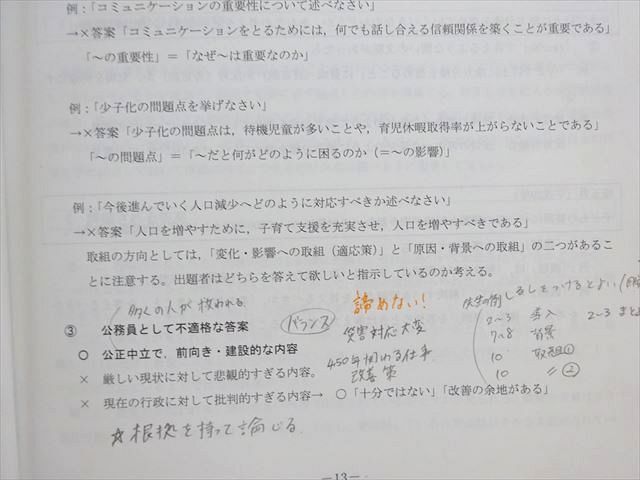 例：「コミュニケーションの重要性について述べなさい」
→×答案「コミュニケーションをとるためには，何でも話し合える信頼関係を築くことが重要である」
「～の重要性」＝「なぜ～は重要なのか」
例：「少子化の問題点を挙げなさい」
→×答案「少子化の問題点は，待機児童が多いことや，育児休暇取得率が上がらないことである」
「～の問題点」＝「～だと何がどのように困るのか（＝～の影響）」
例：「今後進んでいく人口減少へどのように対応すべきか述べなさい」
→×答案「人口を増やすために，子育て支援を充実させ，人口を増やすべきである」
取組の方向としては，「変化・影響への取組（適応策）」と「原因・背景への取組」の二つがあるこ
とに注意する。出題者はどちらを答えて欲しいと指示しているのか考える。
多くの人が救われる
諦めない！
しるしをつけるとよい
③ 公務員として不適格な答案
バランス
災害対応大変
2～3 導入
2～3 まと
○ 公正中立で，前向き・建設的な内容
7～8 背景
× 厳しい現状に対して悲観的すぎる内容。
改善策
10 取組①
10 〃②
× 現在の行政に対して批判的すぎる内容→ ○「十分ではない」「改善の余地がある」
☆根拠を持って論じる。
－13－